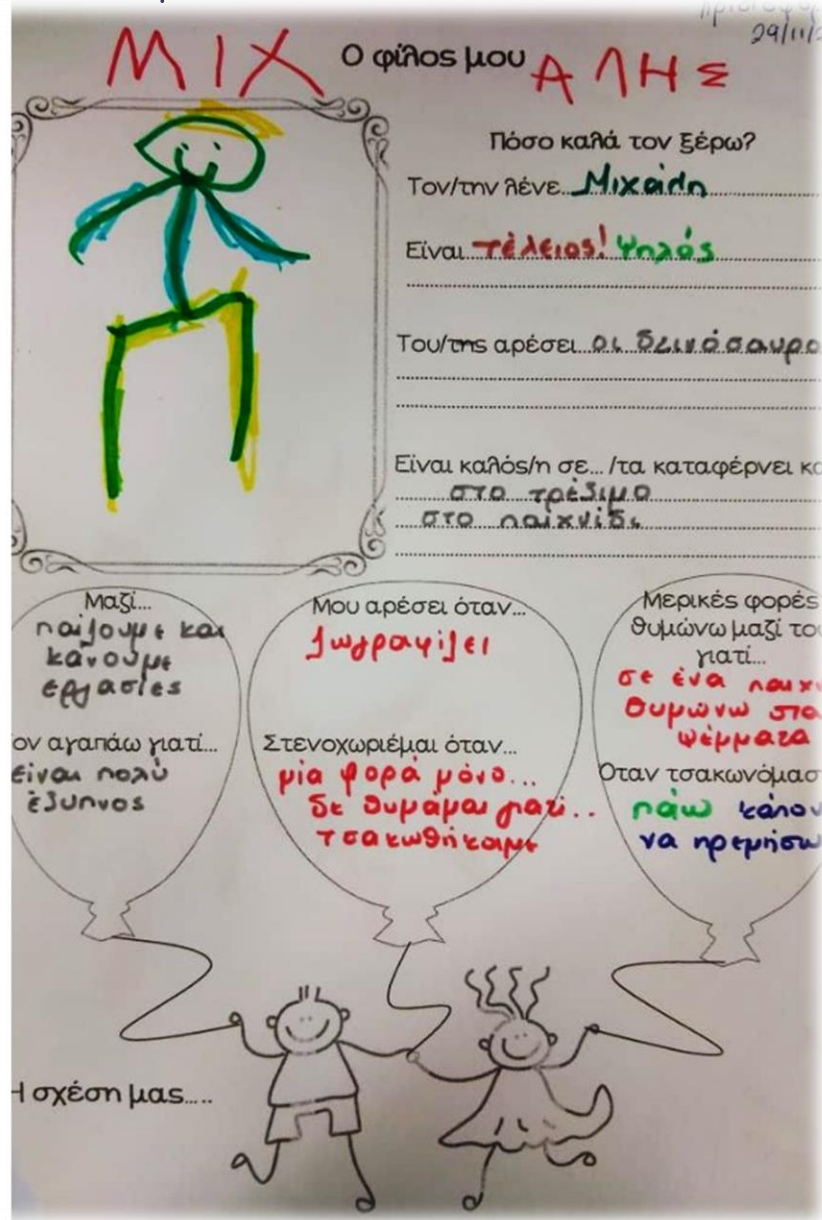 29/11/2
ΜΙΧ Ο φίλος μου ΑΛΗΣ
Πόσο καλά τον ξέρω?
Τον/την λένε Μιχάλη
Είναι τέλειος! ψηλός
Του/της αρέσει οι δεινόσαυρο
Είναι καλός/η σε... /τα καταφέρνει κα
στο τρέξιμο
στο παιχνίδι
Μαζί...
παίζουμε και
κάνουμε
εργασίες
ον αγαπάω γιατί...
είναι πολύ
έξυπνος
Μου αρέσει όταν...
ζωγραφίζει
Στενοχωριέμαι όταν...
μία φορά μόνο...
δε θυμάμαι γιατί..
τσακωθήκαμε
Μερικές φορές
θυμώνω μαζί του
γιατί...
σε ένα παιχν
θυμώνω στα
ψέμματα
Όταν τσακωνόμασ
πάω κάπου
να ηρεμήσω
Η σχέση μας....